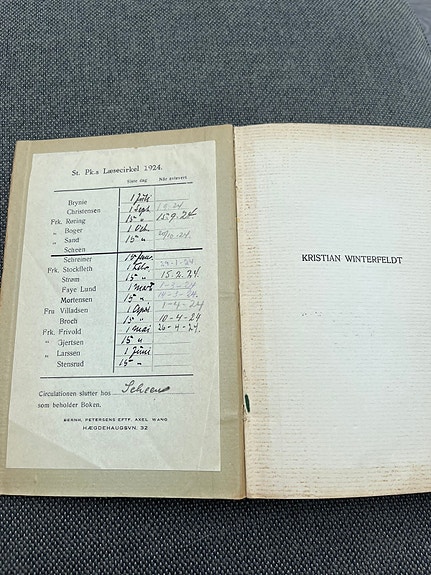 St. Pk.s Læsecirkel 1924.
Siste dag Når avlevert
Brynie 1 Juli
Christensen 1 Sept
Frk. Røring 15 " 15.9.24.
" Boger 1 Oct
" Sand 15 " 20/10.24.
Scheen
Schreiner 15 Jan.
Frk. Stockfleth 1 Febr.
Strøm 15 " 15.2.24.
Faye Lund 1 mars
Mortensen 15 "
Fru Villadsen 1 April 1-4-24
Broch 15 " 10-4-24
Frk. Frivold 1 mai 26-4-24.
" Gjertsen 15 "
" Larssen 1 Juni
Stensrud 15 "
Circulationen slutter hos Scheen
som beholder Boken.
BERNH. PETERSENS EFTF. AXEL WANG
HÆGDEHAUGSVN. 32
KRISTIAN WINTERFELDT